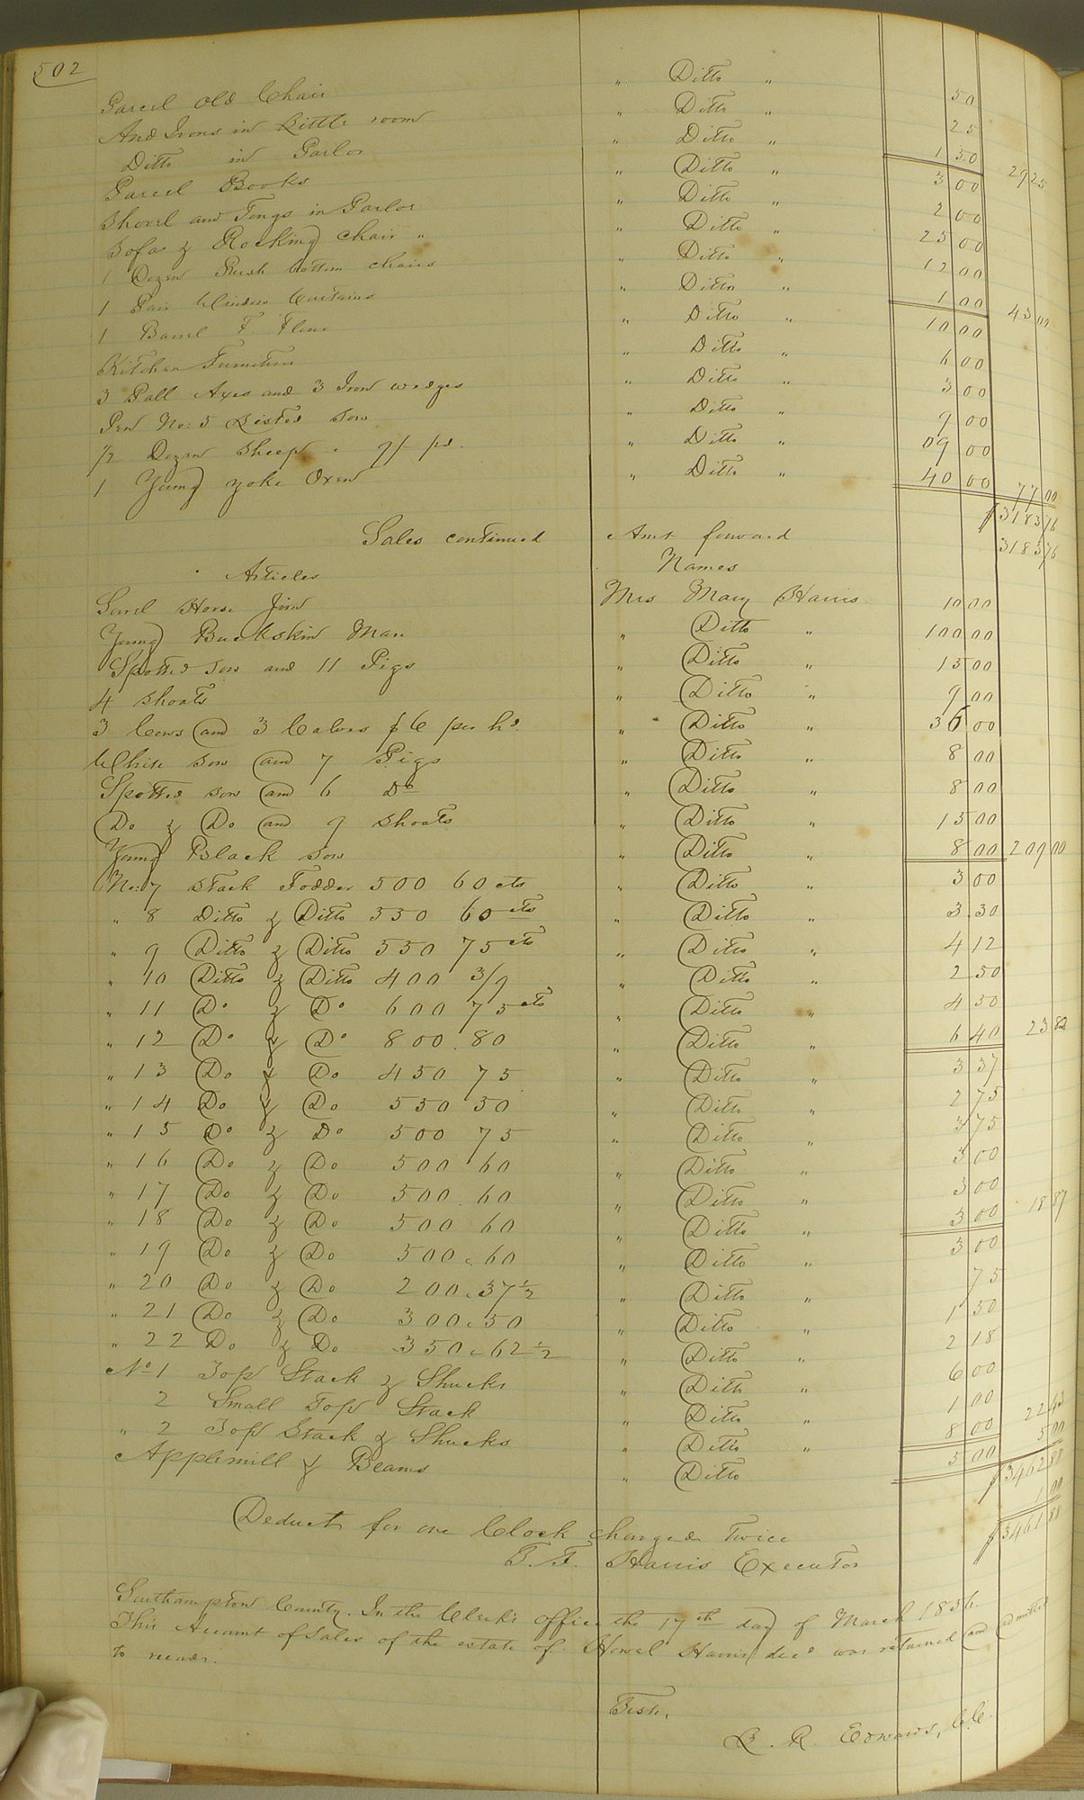 502
Parcel old Chair " Ditto " 50
And Irons in Little room " Ditto " 25
Ditto in Parlor " Ditto " 1 50 29 25
Parcel Books " Ditto " 3 00
Shovel and Tongs in Parlor " Ditto " 2 00
Sofa & Rocking Chair " " Ditto " 25 00
1 Dozen Rush bottom chairs " Ditto " 12 00
1 Pair Window Curtains " Ditto " 1 00 43 00
1 Barrel F. Flour " Ditto " 10 00
Kitchen Furniture " Ditto " 6 00
3 Axes and 3 Iron wedges " Ditto " 3 00
Pen No: 5 Listed Sow " Ditto " 9 00
1/2 Dozen Sheep 9/ " Ditto " 09 00
1 Young yoke Oxen " Ditto " 40 00 77 00
$3183 76
Sales continued Amt forward 3183 76
Articles Names
Sorrel Horse Jim Mrs Mary Harris 10 00
Young Buckskin Mare " Ditto " 100 00
Spotted Sow and 11 Pigs " Ditto " 15 00
4 Shoats " Ditto " 9 00
3 Cows and 3 Calves $6 per hd " Ditto " 36 00
White Sow and 7 Pigs " Ditto " 8 00
Spotted Sow and 6 Do " Ditto " 8 00
Do & Do and 9 Shoats " Ditto " 15 00
Young Black Sow " Ditto " 8 00 209 00
No: 7 Stack Fodder 500 60 cts " Ditto " 3 00
" 8 Ditto & Ditto 550 60 cts " Ditto " 3.30
" 9 Ditto & Ditto 550 75 cts " Ditto " 4 12
" 10 Ditto & Ditto 400 3/9 " Ditto " 2 50
" 11 Do & Do 600 75 cts " Ditto " 4 50
" 12 Do & Do 800 80 " Ditto " 6 40 23 82
" 13 Do & Do 450 75 " Ditto " 3 37
" 14 Do & Do 550 50 " Ditto " 2 75
" 15 Do & Do 500 75 " Ditto " 3 75
" 16 Do & Do 500 60 " Ditto " 3 00
" 17 Do & Do 500 60 " Ditto " 3 00
" 18 Do & Do 500 60 " Ditto " 3 00 18 87
" 19 Do & Do 500 " 60 " Ditto " 3 00
" 20 Do & Do 200 " 37 1/2 " Ditto " 75
" 21 Do & Do 300 " 50 " Ditto " 1 50
" 22 Do & Do 350 " 62 1/2 " Ditto " 2 18
No 1 Top Stack & Shucks " Ditto " 6 00
2 Small Top Stack " Ditto " 1 00
" 2 Top Stack & Shucks " Ditto " 8 00 22 43
Applemill & Beams " Ditto 5 00 5 00
$3462 88
Deduct for one Clock charged twice 1 00
T. F. Harris Executor $3461 88
Southampton County. In the Clerk's office the 17th day of March 1836
This Account of Sales of the estate of Howel Harris decd was returned and admitted
to record.
Teste,
L. R. Edwards, C.C.